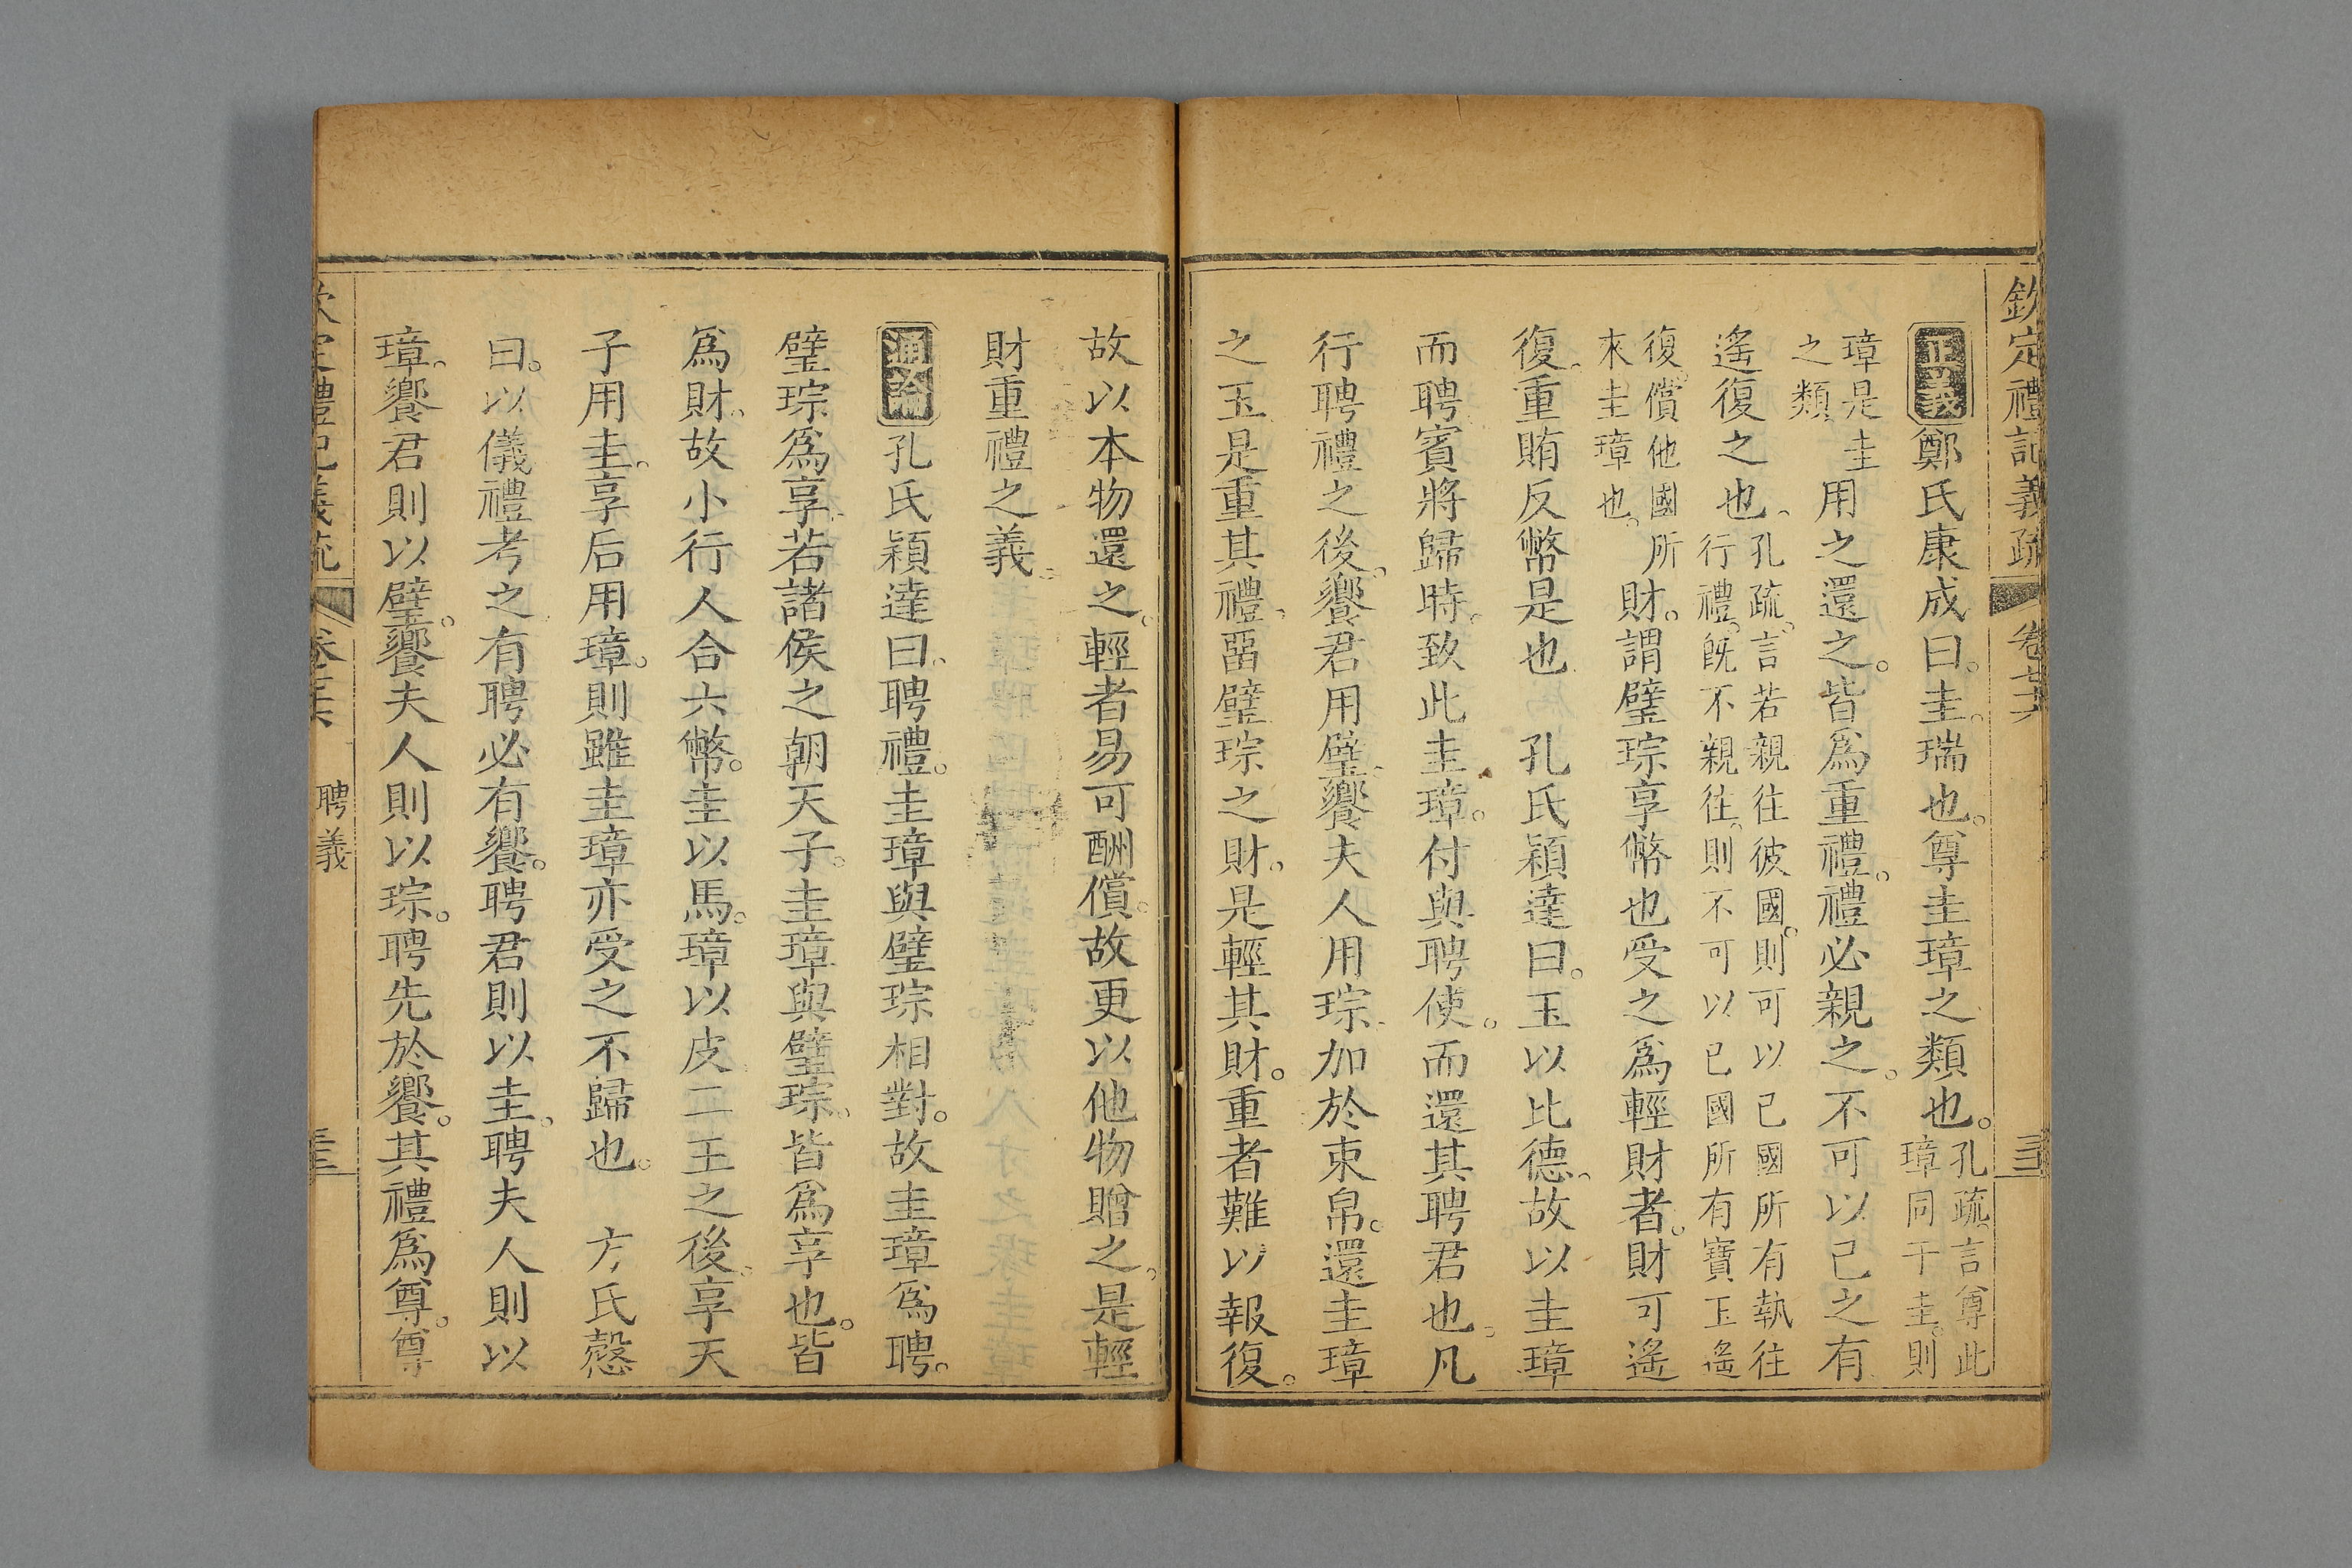 欽定禮記義疏 卷七十六
正義鄭氏康成曰。圭。瑞也。尊圭璋之類也。孔疏。言尊此璋同于圭。則
璋是圭之類用之還之。皆爲重禮。禮必親之。不可以己之有
遙復之也。孔疏。言若親往彼國。則可以己國所有執往行禮。旣不親往。則不可以己國所有寶玉遙
復。償他國所來圭璋也。財。謂璧琮享幣也受之爲輕財者。財可遙
復。重賄反幣是也 孔氏穎達曰。玉以比德。故以圭璋
而聘。賓將歸時。致此圭璋。付與聘使。而還其聘君也。凡
行聘禮之後。饗君用璧。饗夫人用琮。加於束帛。還圭璋
之玉。是重其禮。畱璧琮之財。是輕其財。重者難以報復。
故以本物還之。輕者易可酬償。故更以他物贈之。是輕
財重禮之義。
通論孔氏穎達曰。聘禮。圭璋與璧琮相對。故圭璋爲聘。
璧琮爲享。若諸侯之朝天子。圭璋與璧琮。皆爲享也。皆
爲財。故小行人合六幣。圭以馬。璋以皮。二王之後。享天
子用圭。享后用璋。則雖圭璋亦受之不歸也。 方氏慤
曰。以儀禮考之。有聘必有饗。聘君則以圭。聘夫人則以
璋。饗君則以璧。饗夫人則以琮。聘先於饗。其禮爲尊。尊
聘義